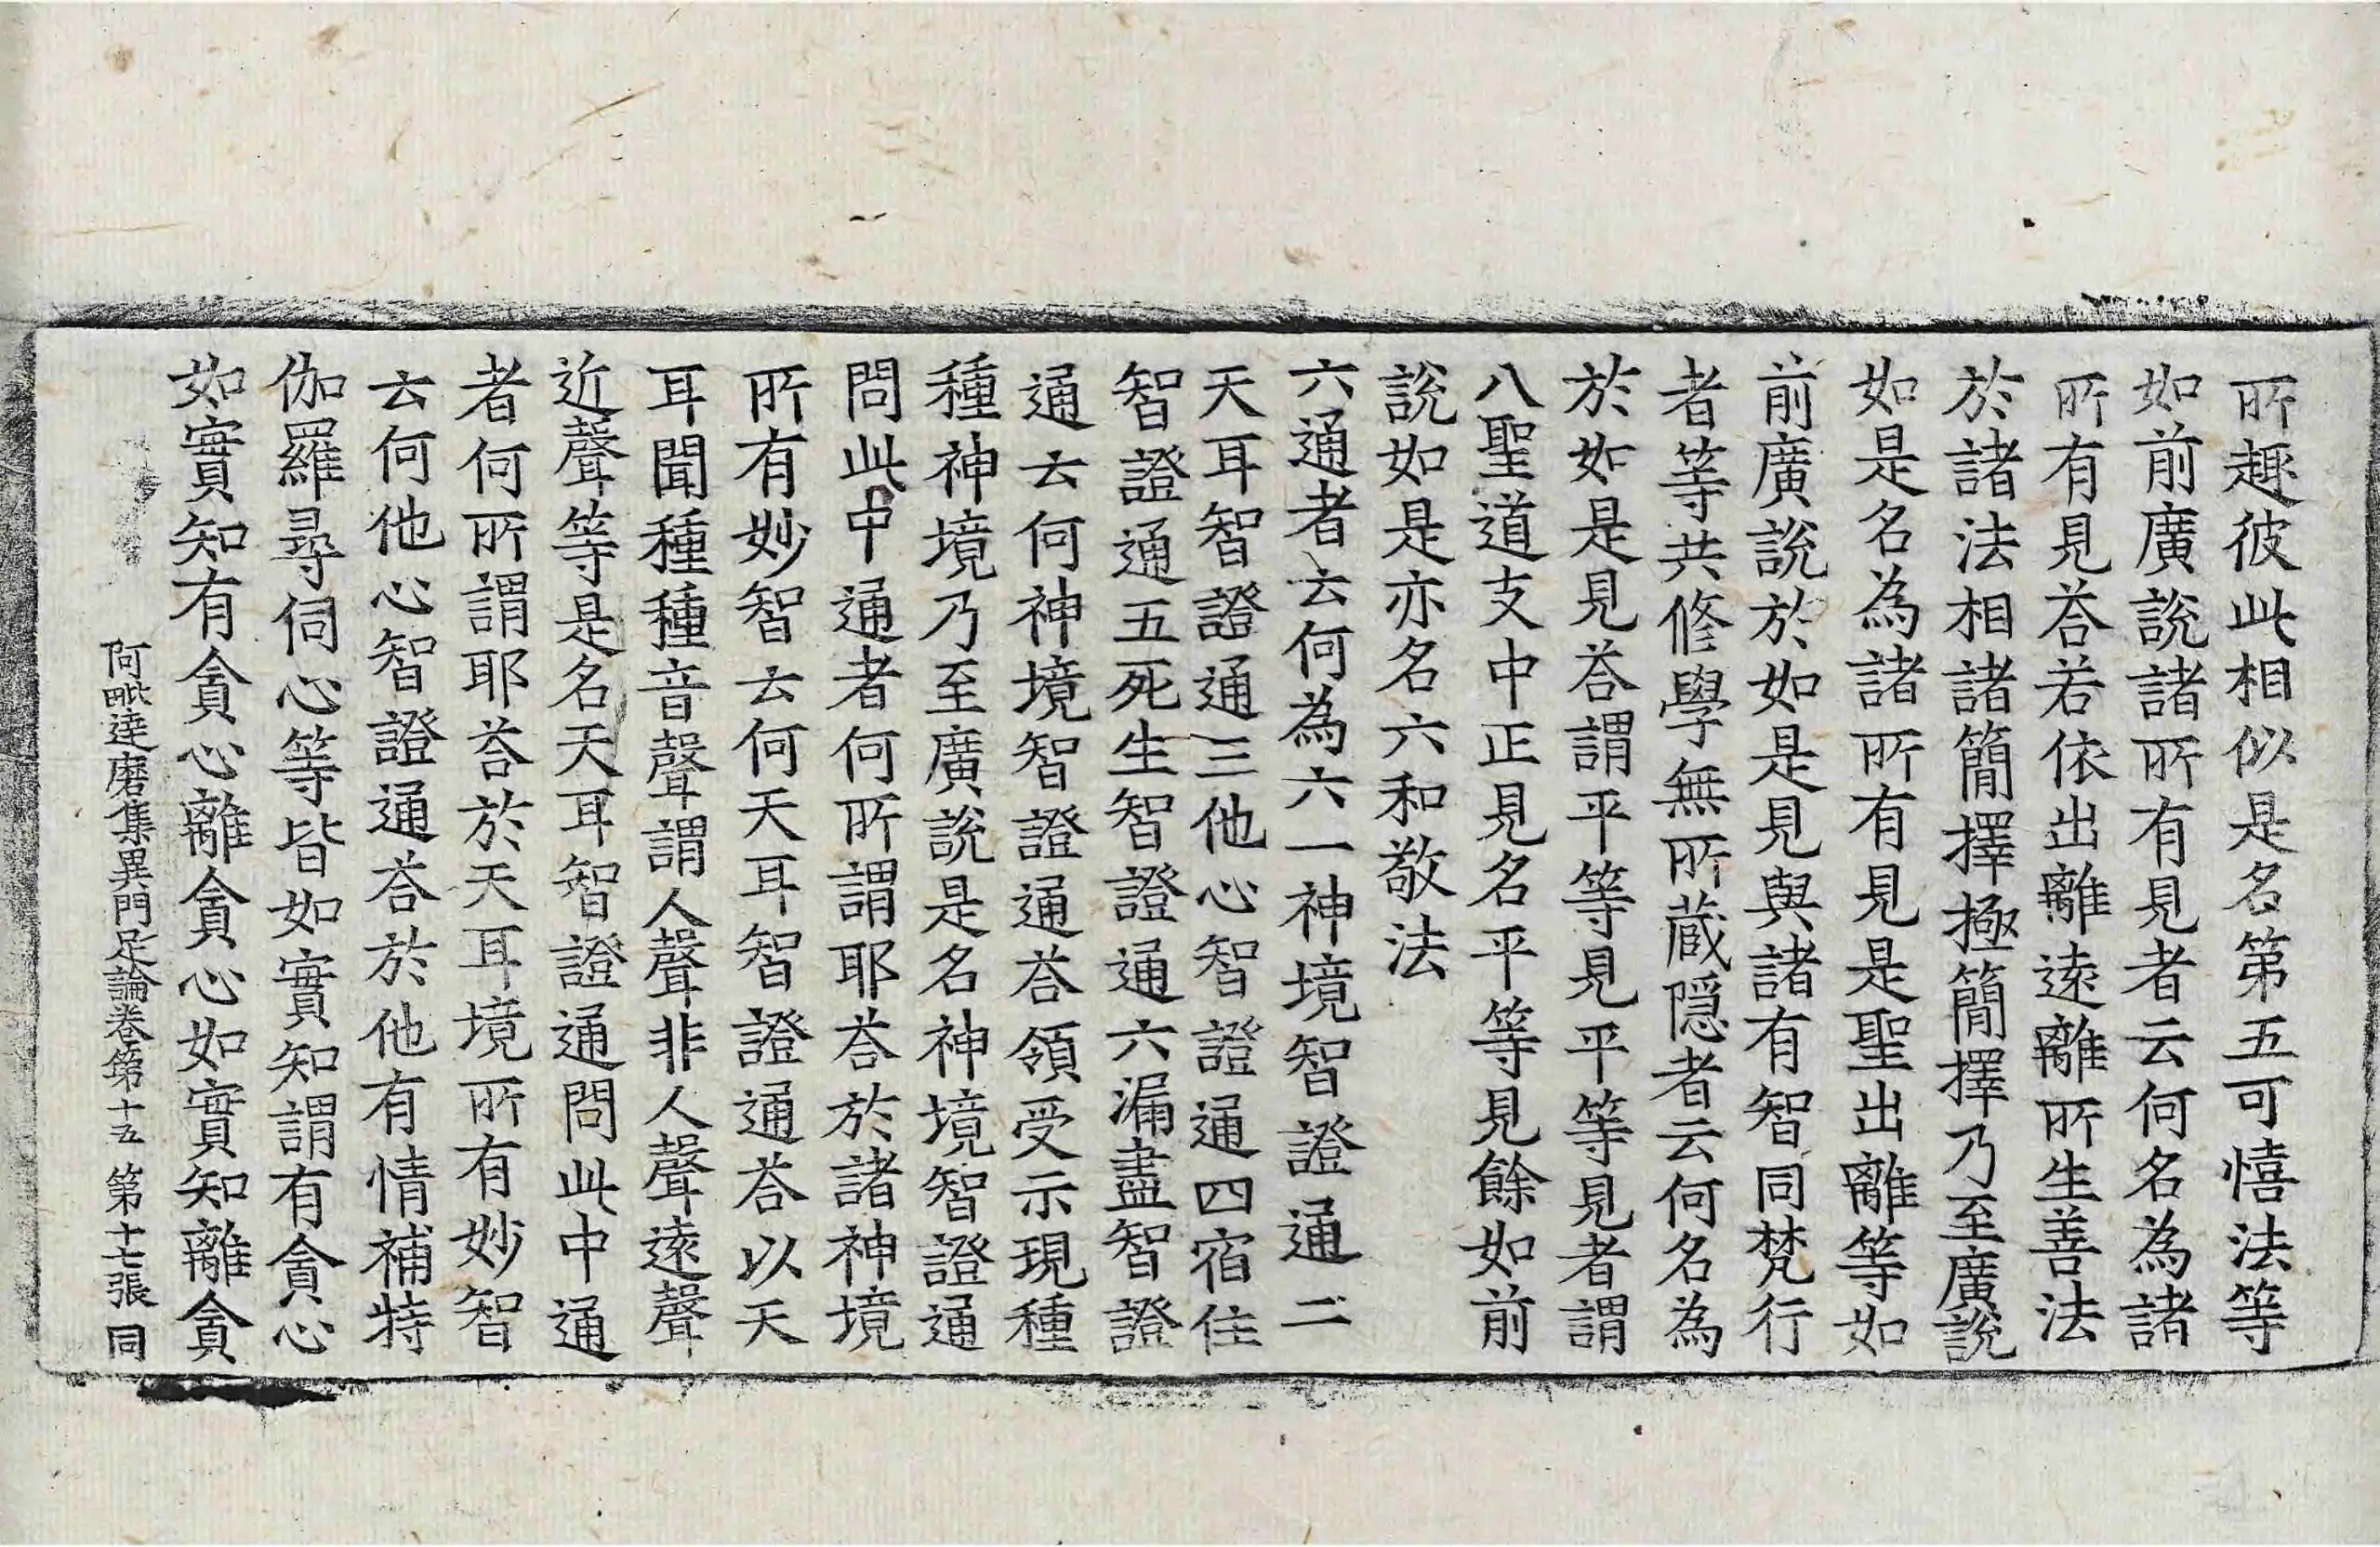 所趣彼此相似是名第五可憘法等
如前廣說諸所有見者云何名為諸
所有見荅若依出離遠離所生善法
於諸法相諸簡擇極簡擇乃至廣說
如是名為諸所有見是聖出離等如
前廣說於如是見與諸有智同梵行
者等共修學無所蔵隠者云何名為
於如是見荅謂平等見平等見者謂
八聖道支中正見名平等見餘如前
說如是亦名六和敬法
六通者云何為六一神境智證通二
天耳智證通三他心智證通四宿住
智證通五死生智證通六漏盡智證
通云何神境智證通荅領受示現種
種神境乃至廣說是名神境智證通
問此中通者何所謂耶荅於諸神境
所有妙智云何天耳智證通荅以天
耳聞種種音聲謂人聲非人聲遠聲
近聲等是名天耳智證通問此中通
者何所謂耶荅於天耳境所有妙智
云何他心智證通荅於他有情補特
伽羅尋伺心等皆如實知謂有貪心
如實知有貪心離貪心如實知離貪
阿毗達磨集異門足論卷第十五 第十七張 同